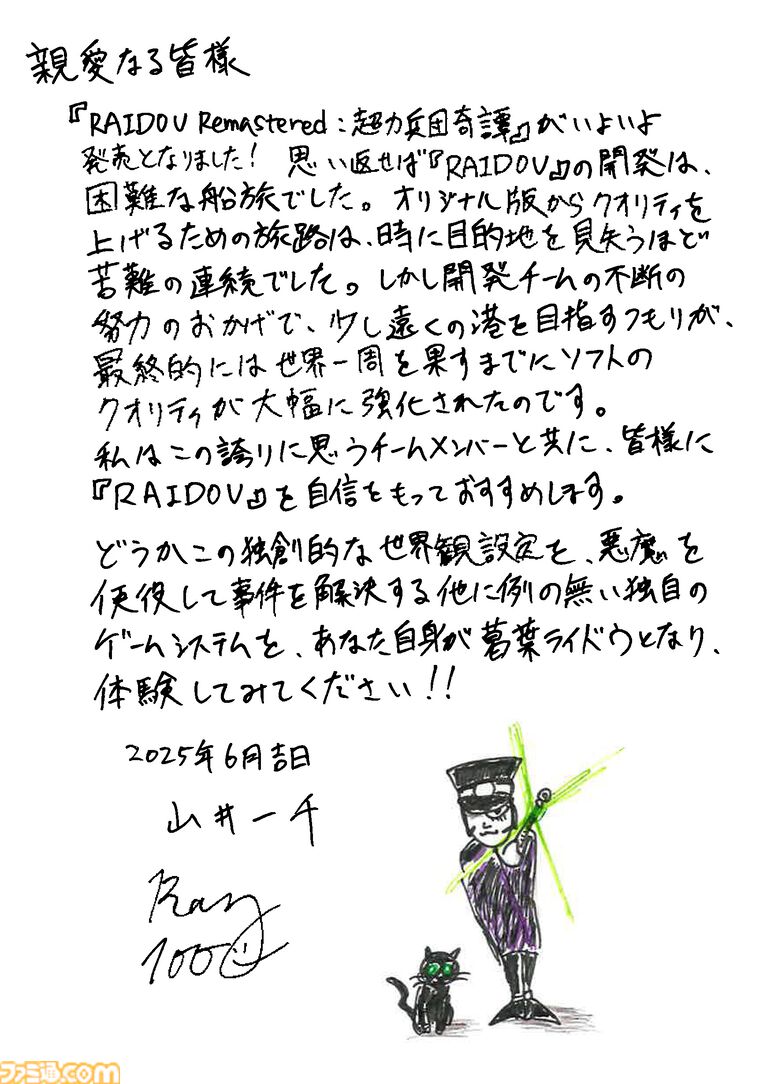 親愛なる皆様
『RAIDOU Remastered：超力兵団奇譚』がいよいよ
発売となりました！ 思い返せば『RAIDOU』の開発は、
困難な船旅でした。オリジナル版からクオリティを
上げるための旅路は、時に目的地を見失うほど
苦難の連続でした。しかし開発チームの不断の
努力のおかげで、少し遠くの港を目指すつもりが、
最終的には世界一周を果すまでにソフトの
クオリティが大幅に強化されたのです。
私はこの誇りに思うチームメンバーと共に、皆様に
『RAIDOU』を自信をもっておすすめします。
どうかこの独創的な世界観設定を、悪魔を
使役して事件を解決する他に例の無い独自の
ゲームシステムを、あなた自身が葛葉ライドウとなり、
体験してみてください！！
2025年6月吉日
山井一千
Ray
100
ファミ通.com